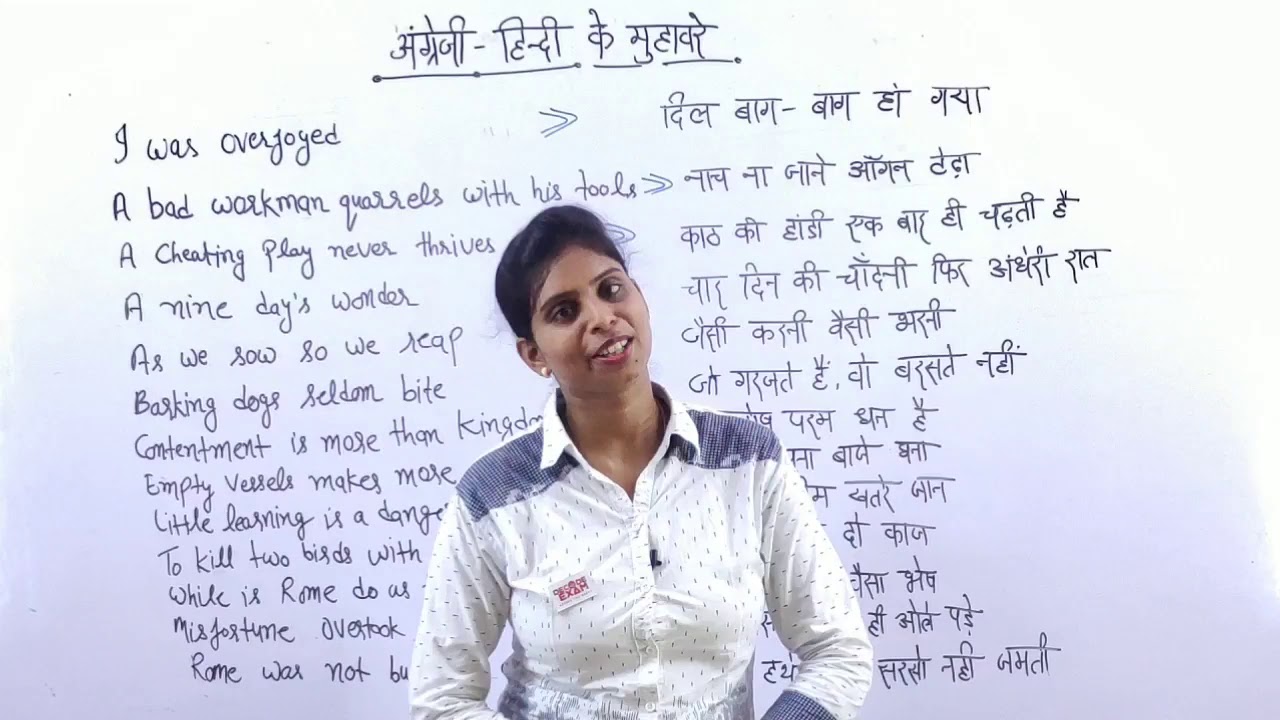 अंग्रेजी - हिन्दी के मुहावरे
I was overjoyed >> दिल बाग - बाग हो गया
A bad workman quarrels with his tools >> नाच ना जाने आँगन टेढ़ा
A Cheating Play never thrives >> काठ की हांडी एक बार ही चढ़ती है
A nine day's wonder चार दिन की चाँदनी फिर अंधेरी रात
As we sow so we reap जैसी करनी वैसी भरनी
Barking dogs seldom bite जो गरजते हैं, वो बरसते नहीं
Contentment is more than परम धन है
Empty Vessels makes more बाजे घना
Little learning is a खतरे जान
To kill two birds with दो काज
While is Rome do as भेष
Misfortune overtook ही ओले पड़े
Rome was not सरसो नही जमती
EXAM